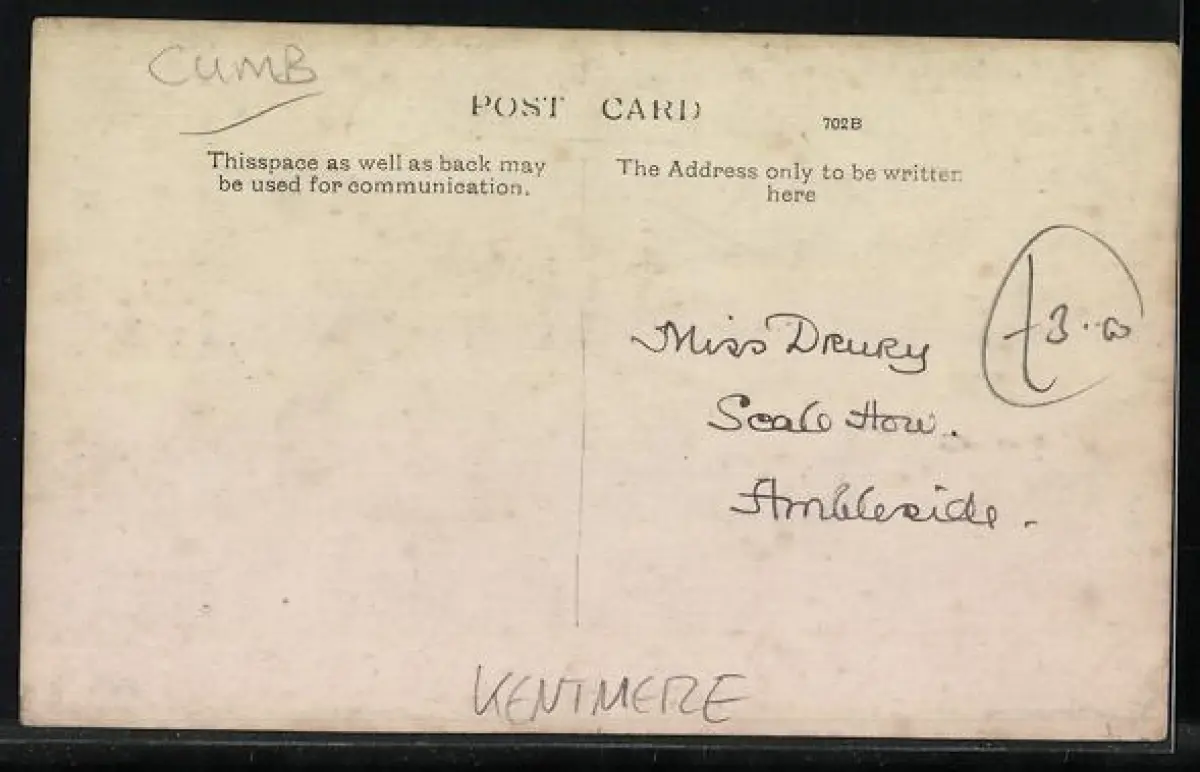 CUMB
POST CARD
702B
Thisspace as well as back may
be used for communication.
The Address only to be written
here
£3..00
Miss Drury
Scale How.
Ambleside.
KENTMERE